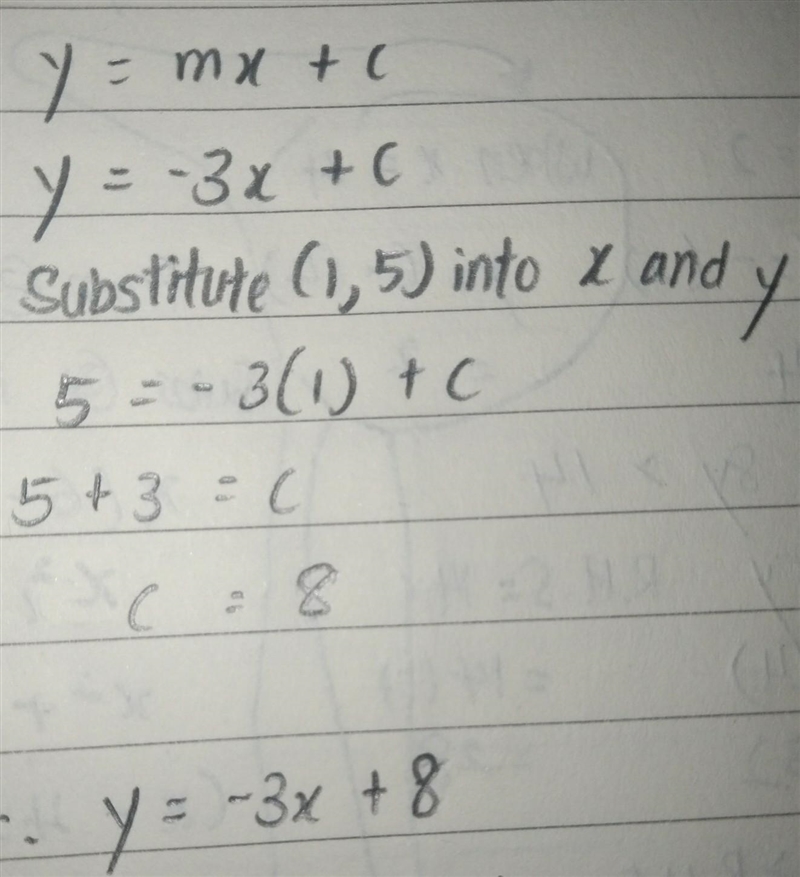 y = mx + c
y = -3x + c
Substitute (1, 5) into x and y
5 = -3(1) + c
5 + 3 = c
c = 8
∴ y = -3x + 8